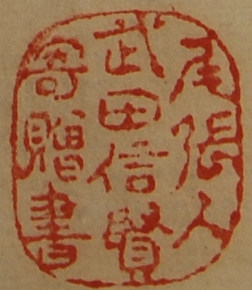 尾張人
武田信賢
寄贈書